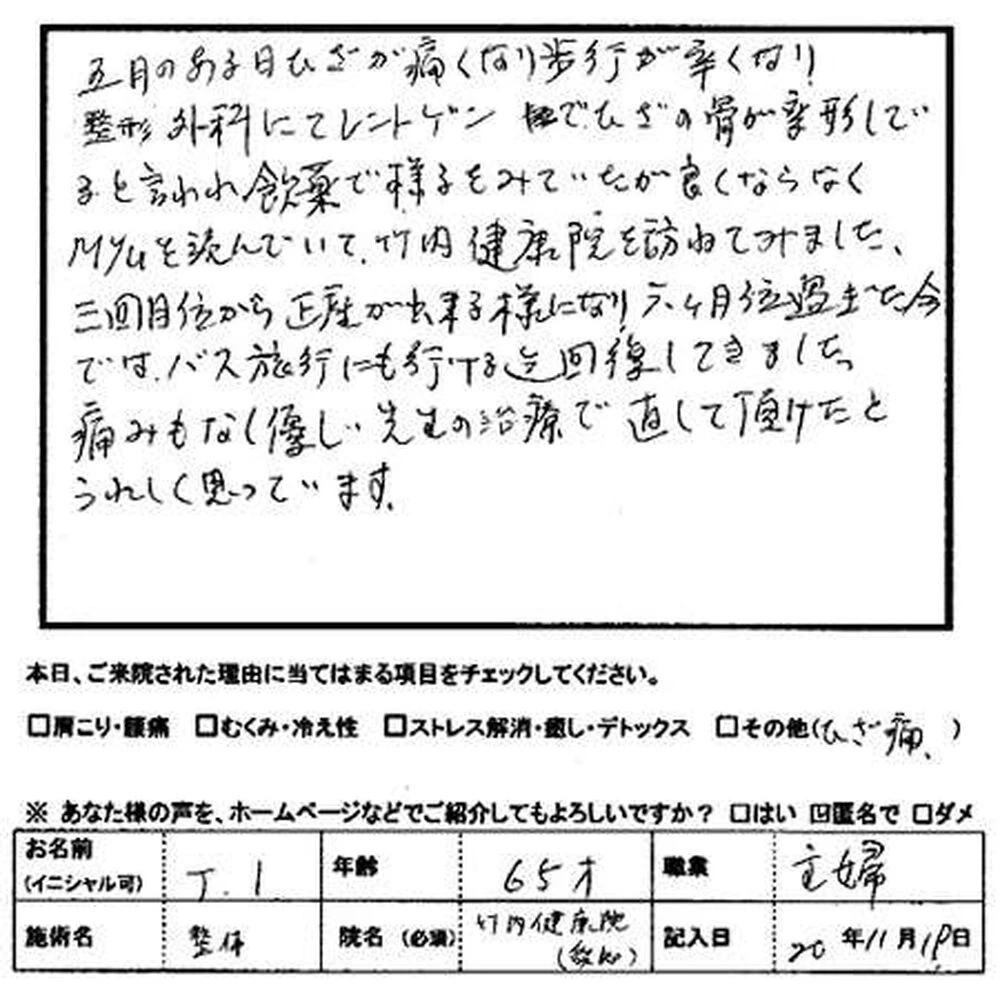 五月のある日ひざが痛くなり歩行が辛くなり
整形外科にてレントゲン でひざの骨が変形してい
ると言われ飲薬で様子をみていたが良くならなく
を読んでいて、竹内健康院を訪ねてみました、
三回目位から正座が出来る様になり六ヶ月位過ぎた今
では、バス旅行にも行ける迄回復してきました。
痛みもなく優しい先生の治療で直して頂けたと
うれしく思っています。
本日、ご来院された理由に当てはまる項目をチェックしてください。
□肩こり・腰痛 □むくみ・冷え性 □ストレス解消・癒し・デトックス □その他(ひざ痛、)
※ あなた様の声を、ホームページなどでご紹介してもよろしいですか? □はい ☑匿名で □ダメ
お名前 (イニシャル可) T.I 年齢 65才 職業 主婦
施術名 整体 院名 (必須) 竹内健康院 記入日 20年11月 日